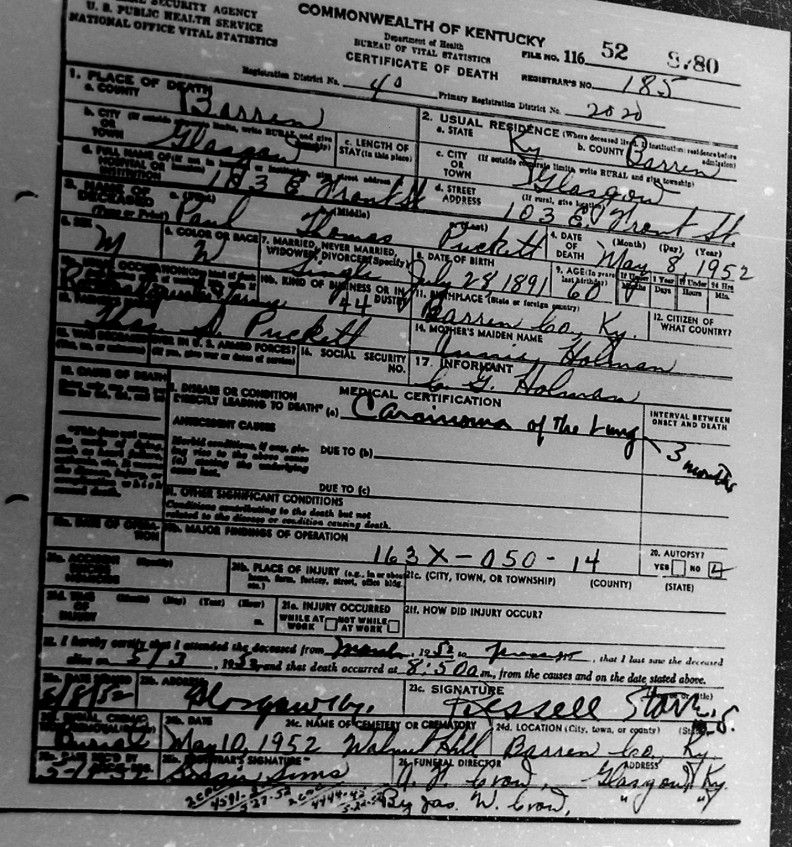 SECURITY AGENCY
U. S. PUBLIC HEALTH SERVICE
NATIONAL OFFICE VITAL STATISTICS
COMMONWEALTH OF KENTUCKY
Department of Health
BUREAU OF VITAL STATISTICS
CERTIFICATE OF DEATH
FILE NO. 116 52 9780
REGISTRAR'S NO. 185
Registration District No. 40 Primary Registration District No. 2020
1. PLACE OF DEATH
a. COUNTY Barren
2. USUAL RESIDENCE (Where deceased lived. If institution: residence before admission)
a. STATE Ky b. COUNTY Barren
b. CITY OR TOWN (If outside corporate limits, write RURAL and give township) Glasgow
c. LENGTH OF STAY (in this place)
c. CITY OR TOWN (If outside corporate limits, write RURAL and give township) Glasgow
d. FULL NAME OF HOSPITAL OR INSTITUTION 103 E Front St
d. STREET ADDRESS (If rural, give location) 103 E. Front St
3. NAME OF DECEASED (Type or Print) a. (First) Paul (Middle) Thomas (Last) Puckett
4. DATE OF DEATH (Month) (Day) (Year) May 8 1952
5. SEX M
6. COLOR OR RACE W
7. MARRIED, NEVER MARRIED, WIDOWED, DIVORCED (Specify) Single
8. DATE OF BIRTH July 28 1891
9. AGE (In years last birthday) 60
If Under 1 Year Days If Under 24 Hrs Hours Min.
10b. KIND OF BUSINESS OR INDUSTRY 44
11. BIRTHPLACE (State or foreign country) Barren Co, Ky.
12. CITIZEN OF WHAT COUNTRY?
Puckett
14. MOTHER'S MAIDEN NAME Annie Holman
IN U. S. ARMED FORCES?
16. SOCIAL SECURITY NO.
17. INFORMANT C. G. Holman
18. CAUSE OF DEATH
MEDICAL CERTIFICATION
INTERVAL BETWEEN ONSET AND DEATH
I. DISEASE OR CONDITION DIRECTLY LEADING TO DEATH* (a) Carcinoma of the Lung 3 months
ANTECEDENT CAUSES
Morbid conditions, if any, giving rise to the above cause (a) stating the underlying cause last.
DUE TO (b)
DUE TO (c)
II. OTHER SIGNIFICANT CONDITIONS
Conditions contributing to the death but not related to the disease or condition causing death.
19a. DATE OF OPERATION
19b. MAJOR FINDINGS OF OPERATION
163X-050-14
20. AUTOPSY? YES NO
21a. ACCIDENT
21b. PLACE OF INJURY (e.g., in or about home, farm, factory, street, office bldg. etc.)
21c. (CITY, TOWN, OR TOWNSHIP) (COUNTY) (STATE)
21d. TIME OF INJURY (Month) (Day) (Year) (Hour) m.
21e. INJURY OCCURRED WHILE AT WORK NOT WHILE AT WORK
21f. HOW DID INJURY OCCUR?
22. I hereby certify that I attended the deceased from March, 1952 to present, that I last saw the deceased
alive on 5/3, 1952 and that death occurred at 8:50 a m., from the causes and on the date stated above.
5/8/52
23b. ADDRESS Glasgow Ky.
23c. SIGNATURE
Burial
24b. DATE May 10, 1952
24c. NAME OF CEMETERY OR CREMATORY Walnut Hill
24d. LOCATION (City, town, or county) (State) Barren Co, Ky
REGISTRAR'S SIGNATURE Sims
FUNERAL DIRECTOR A. F. Crow, ADDRESS Glasgow, Ky.
By Jas. W. Crow, " "